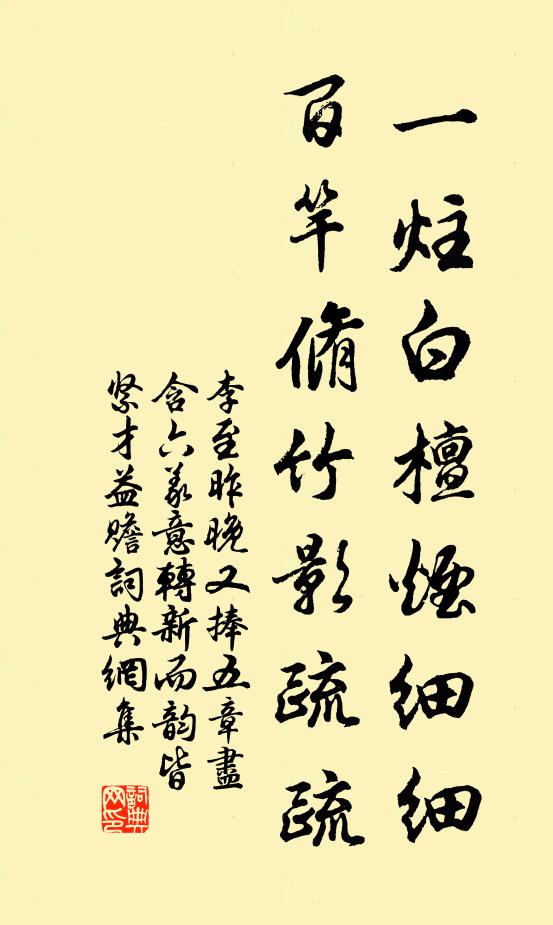 一炷白檀煙細細
百竿脩竹影疏疏
李至昨晚又捧五章盡
含六義意轉新而韵皆
緊才益贍詞典網集
詞典網印